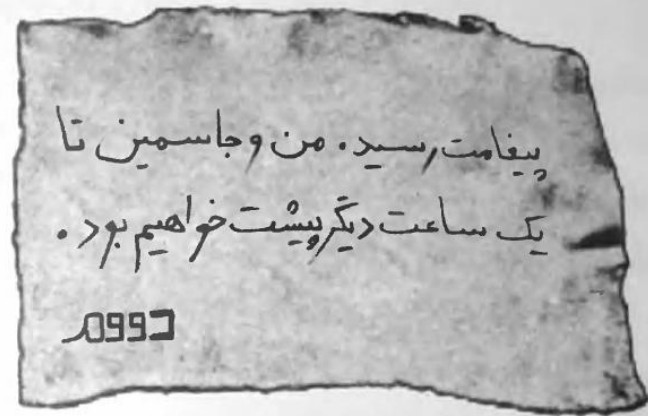 پیغامت رسید. من و جاسمین تا
یک ساعت دیگر پیشت خواهیم بود.